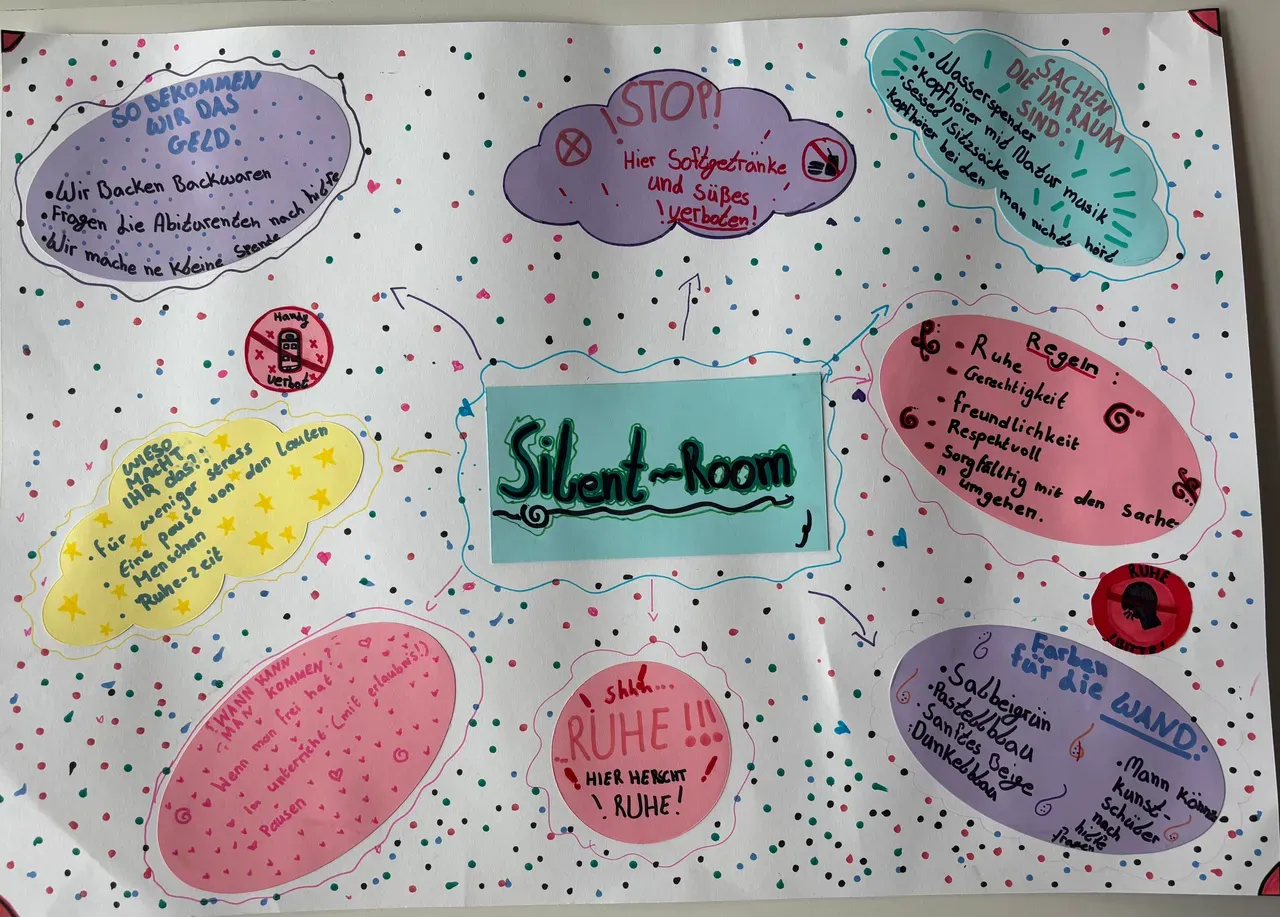 SO BEKOMMEN
WIR DAS
GELD:
• Wir Backen Backwaren
• Fragen die Abiturenten nach hilfe
• Wir mache ne kleine Spende
¡STOP!
Hier Softgetränke
und Süßes
! verboten!
SACHEN
DIE IM RAUM
SIND:
• Wasserspender
• Kopfhörer mid Natur musik
• Sessel/sitzsäcke
Kopfhörer bei den man nichts hört
Handy
verbot
Silent~Room
Regeln:
- Ruhe
- Gerechtigkeit
- freundlichkeit
- Respektvoll
- Sorgfälltig mit den Sache-
n umgehen.
WIESO
MACHT
IHR das?:
• für weniger stress
• Eine pause von den Lauten
Menschen
• Ruhe-zeit
RUHE
!WANN KANN
MAN KOMMEN?
Wenn man frei hat
im unterricht (mit erlaubnis!)
Pausen
! shhh...
RUHE!!!
! HIER HERSCHT !
! RUHE!
Farben
für die WAND:
• Salbeigrün
• Pastellblau
• Sanftes Beige
• Dunkelblau
• Mann könnte
kunst-
schüler
nach
hilfe
fragen